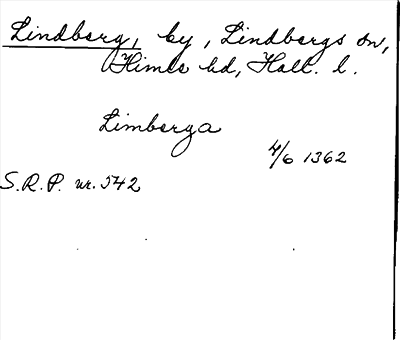 Lindberg, by, Lindbergs sn,
Himle hd, Hall. l.
Limberga
4/6 1362
S.R.P. nr. 542